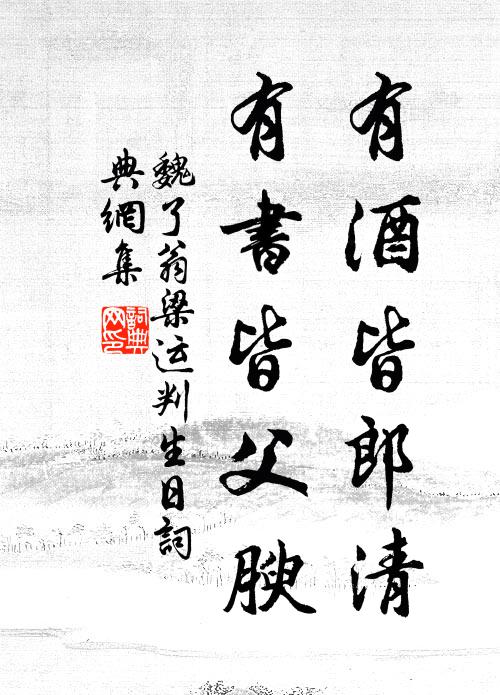 有酒皆郎清
有書皆父腴
魏了翁梁运判生日詞
典網集
詞典
网印